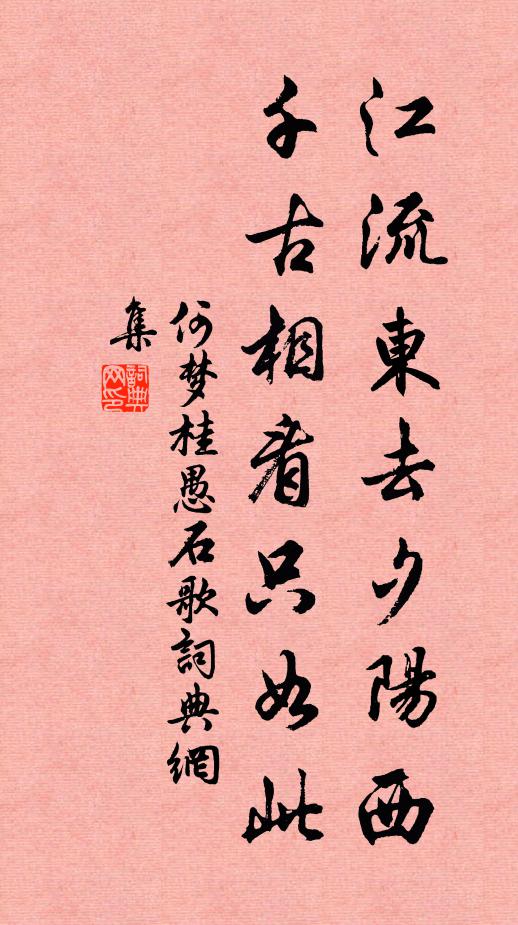 江流東去夕陽西
千古相看只如此
何梦桂愚石歌詞典網
集
詞典网印